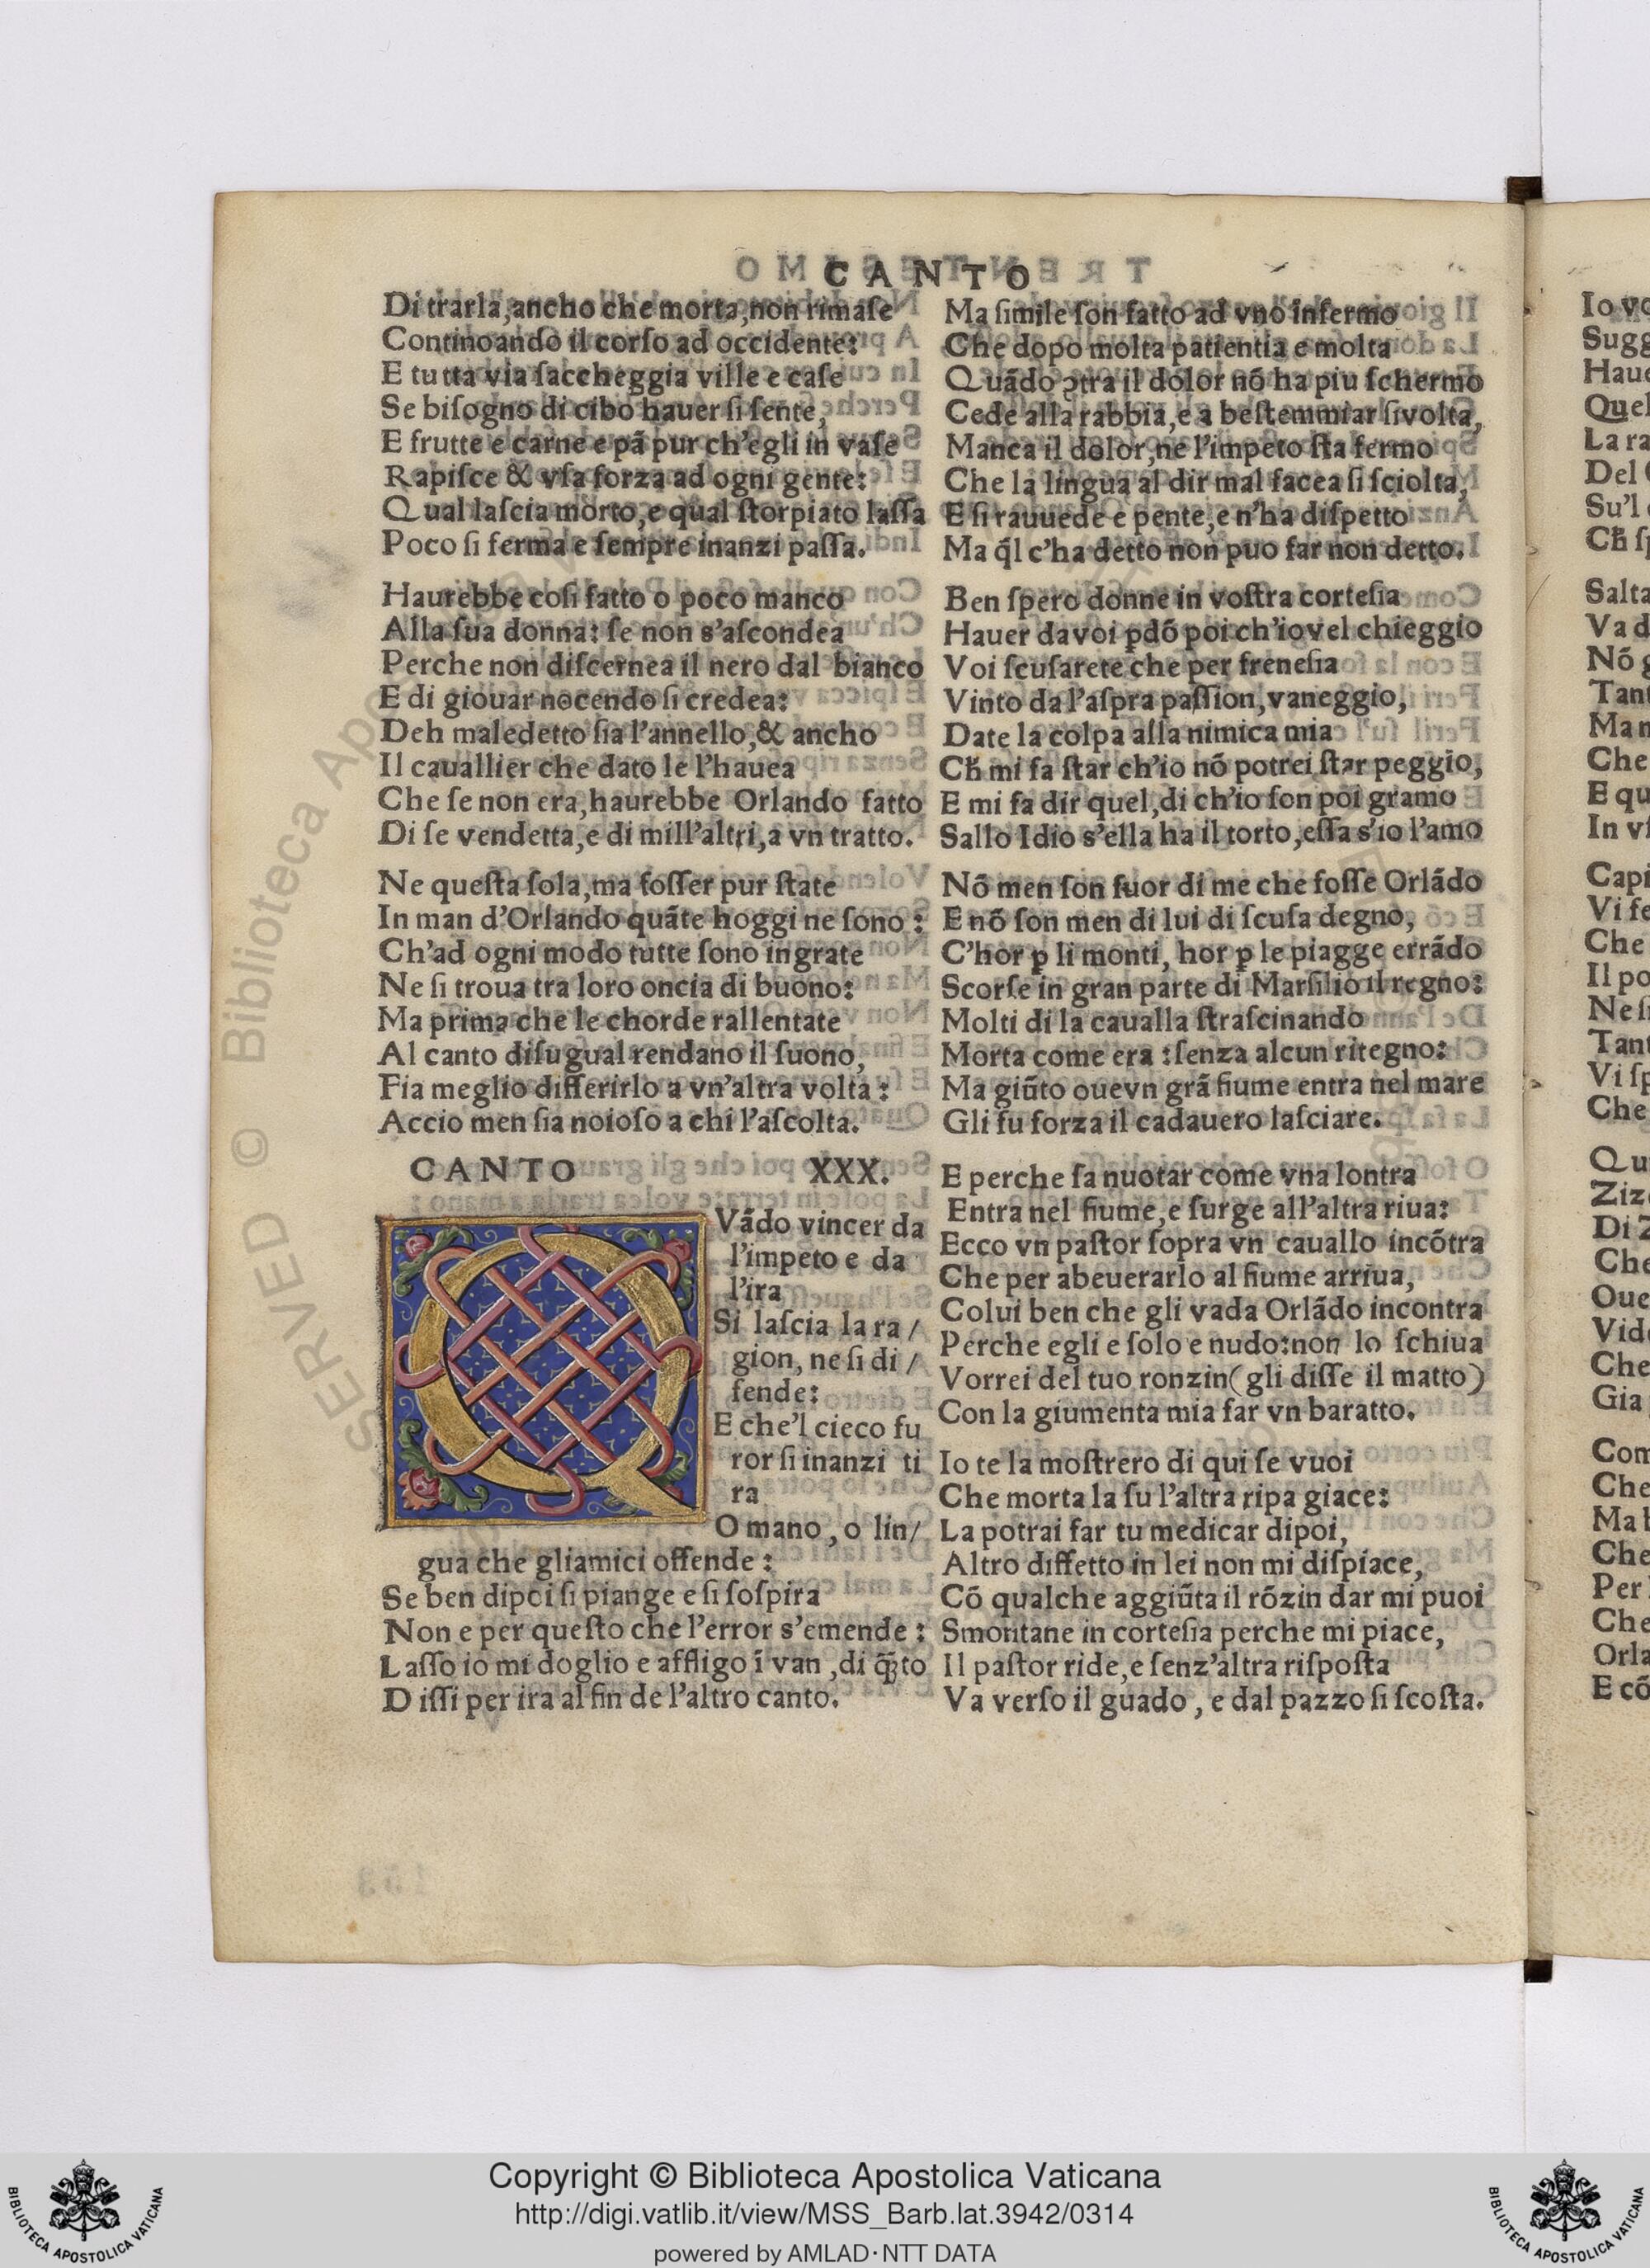 CANTO
Di trarla, ancho che morta, non rimaſe
Continoando il corſo ad occidente:
E tutta via ſaccheggia ville e caſe
Se biſogno di cibo hauer ſi ſente,
E frutte e carne e pã pur ch'egli in vaſe
Rapiſce & vſa forza ad ogni gente:
Qual laſcia morto, e qual ſtorpiato laſſa
Poco ſi ferma e ſempre inanzi paſſa.
Haurebbe coſi fatto o poco manco
Alla ſua donna: ſe non s'aſcondea
Perche non diſcernea il nero dal bianco
E di giouar nocendo ſi credea:
Deh maledetto ſia l'annello, & ancho
Il cauallier che dato le l'hauea
Che ſe non era, haurebbe Orlando fatto
Di ſe vendetta, e di mill'altri, a vn tratto.
Ne queſta ſola, ma foſſer pur ſtate
In man d'Orlando quãte hoggi ne ſono:
Ch'ad ogni modo tutte ſono ingrate
Ne ſi troua tra loro oncia di buono:
Ma prima che le chorde rallentate
Al canto diſugual rendano il ſuono,
Fia meglio differirlo a vn'altra volta:
Accio men ſia noioſo a chi l'aſcolta.
CANTO XXX.
Vãdo vincer da
l'impeto e da
l'ira
Si laſcia la ra/
gion, ne ſi di/
fende:
E che'l cieco fu
ror ſi inanzi ti
ra
O mano, o lin/
gua che gliamici offende:
Se ben dipoi ſi piange e ſi ſoſpira
Non e per queſto che l'error s'emende:
Laſſo io mi doglio e affligo ĩ van, di q̃to
Diſſi per ira al fin de l'altro canto.
Ma ſimile ſon fatto ad vno infermo
Che dopo molta patientia e molta
Quãdo ↄtra il dolor nõ ha piu ſchermo
Cede alla rabbia, e a beſtemmiar ſivolta,
Manca il dolor, ne l'impeto ſta fermo
Che la lingua al dir mal facea ſi ſciolta,
E ſi rauuede e pente, e n'ha diſpetto
Ma q̃l c'ha detto non puo far non detto.
Ben ſpero donne in voſtra corteſia
Hauer da voi ꝑdõ poi ch'iovel chieggio
Voi ſcuſarete che per freneſia
Vinto da l'aſpra paſſion, vaneggio,
Date la colpa alla nimica mia
Cħ mi fa ſtar ch'io nõ potrei ſtar peggio,
E mi fa dir quel, di ch'io ſon poi gramo
Sallo Idio s'ella ha il torto, eſſa s'io l'amo
Nõ men ſon fuor di me che foſſe Orlãdo
E nõ ſon men di lui di ſcuſa degno,
C'hor ꝑ li monti, hor ꝑ le piagge errãdo
Scorſe in gran parte di Marſilio il regno:
Molti di la caualla ſtraſcinando
Morta come era: ſenza alcun ritegno:
Ma giũto ouevn grã fiume entra nel mare
Gli fu forza il cadauero laſciare.
E perche ſa nuotar come vna lontra
Entra nel fiume, e ſurge all'altra riua:
Ecco vn paſtor ſopra vn cauallo incõtra
Che per abeuerarlo al fiume arriua,
Colui ben che gli vada Orlãdo incontra
Perche egli e ſolo e nudo: non lo ſchiua
Vorrei del tuo ronzin (gli diſſe il matto)
Con la giumenta mia far vn baratto.
Io te la moſtrero di qui ſe vuoi
Che morta la ſu l'altra ripa giace:
La potrai far tu medicar dipoi,
Altro diffetto in lei non mi diſpiace,
Cõ qualche aggiũta il rõzin dar mi puoi
Smontane in corteſia perche mi piace,
Il paſtor ride, e ſenz'altra riſpoſta
Va verſo il guado, e dal pazzo ſi ſcoſta.
Copyright © Biblioteca Apostolica Vaticana
http://digi.vatlib.it/view/MSS_Barb.lat.3942/0314
powered by AMLAD·NTT DATA
BIBLIOTECA APOSTOLICA VATICANA
BIBLIOTECA APOSTOLICA VATICANA